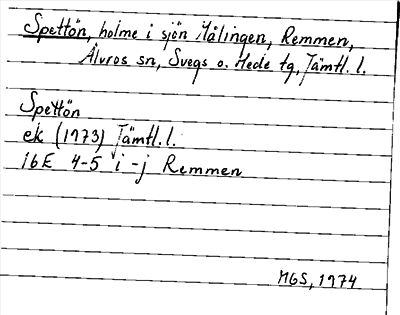 Spettön, holme i sjön Målingen, Remmen,
Älvros sn, Svegs o. Hede tg, Jämtl. l.
Spettön
ek (1973) Jämtl. l.
16E 4-5 i-j Remmen
MGS, 1974